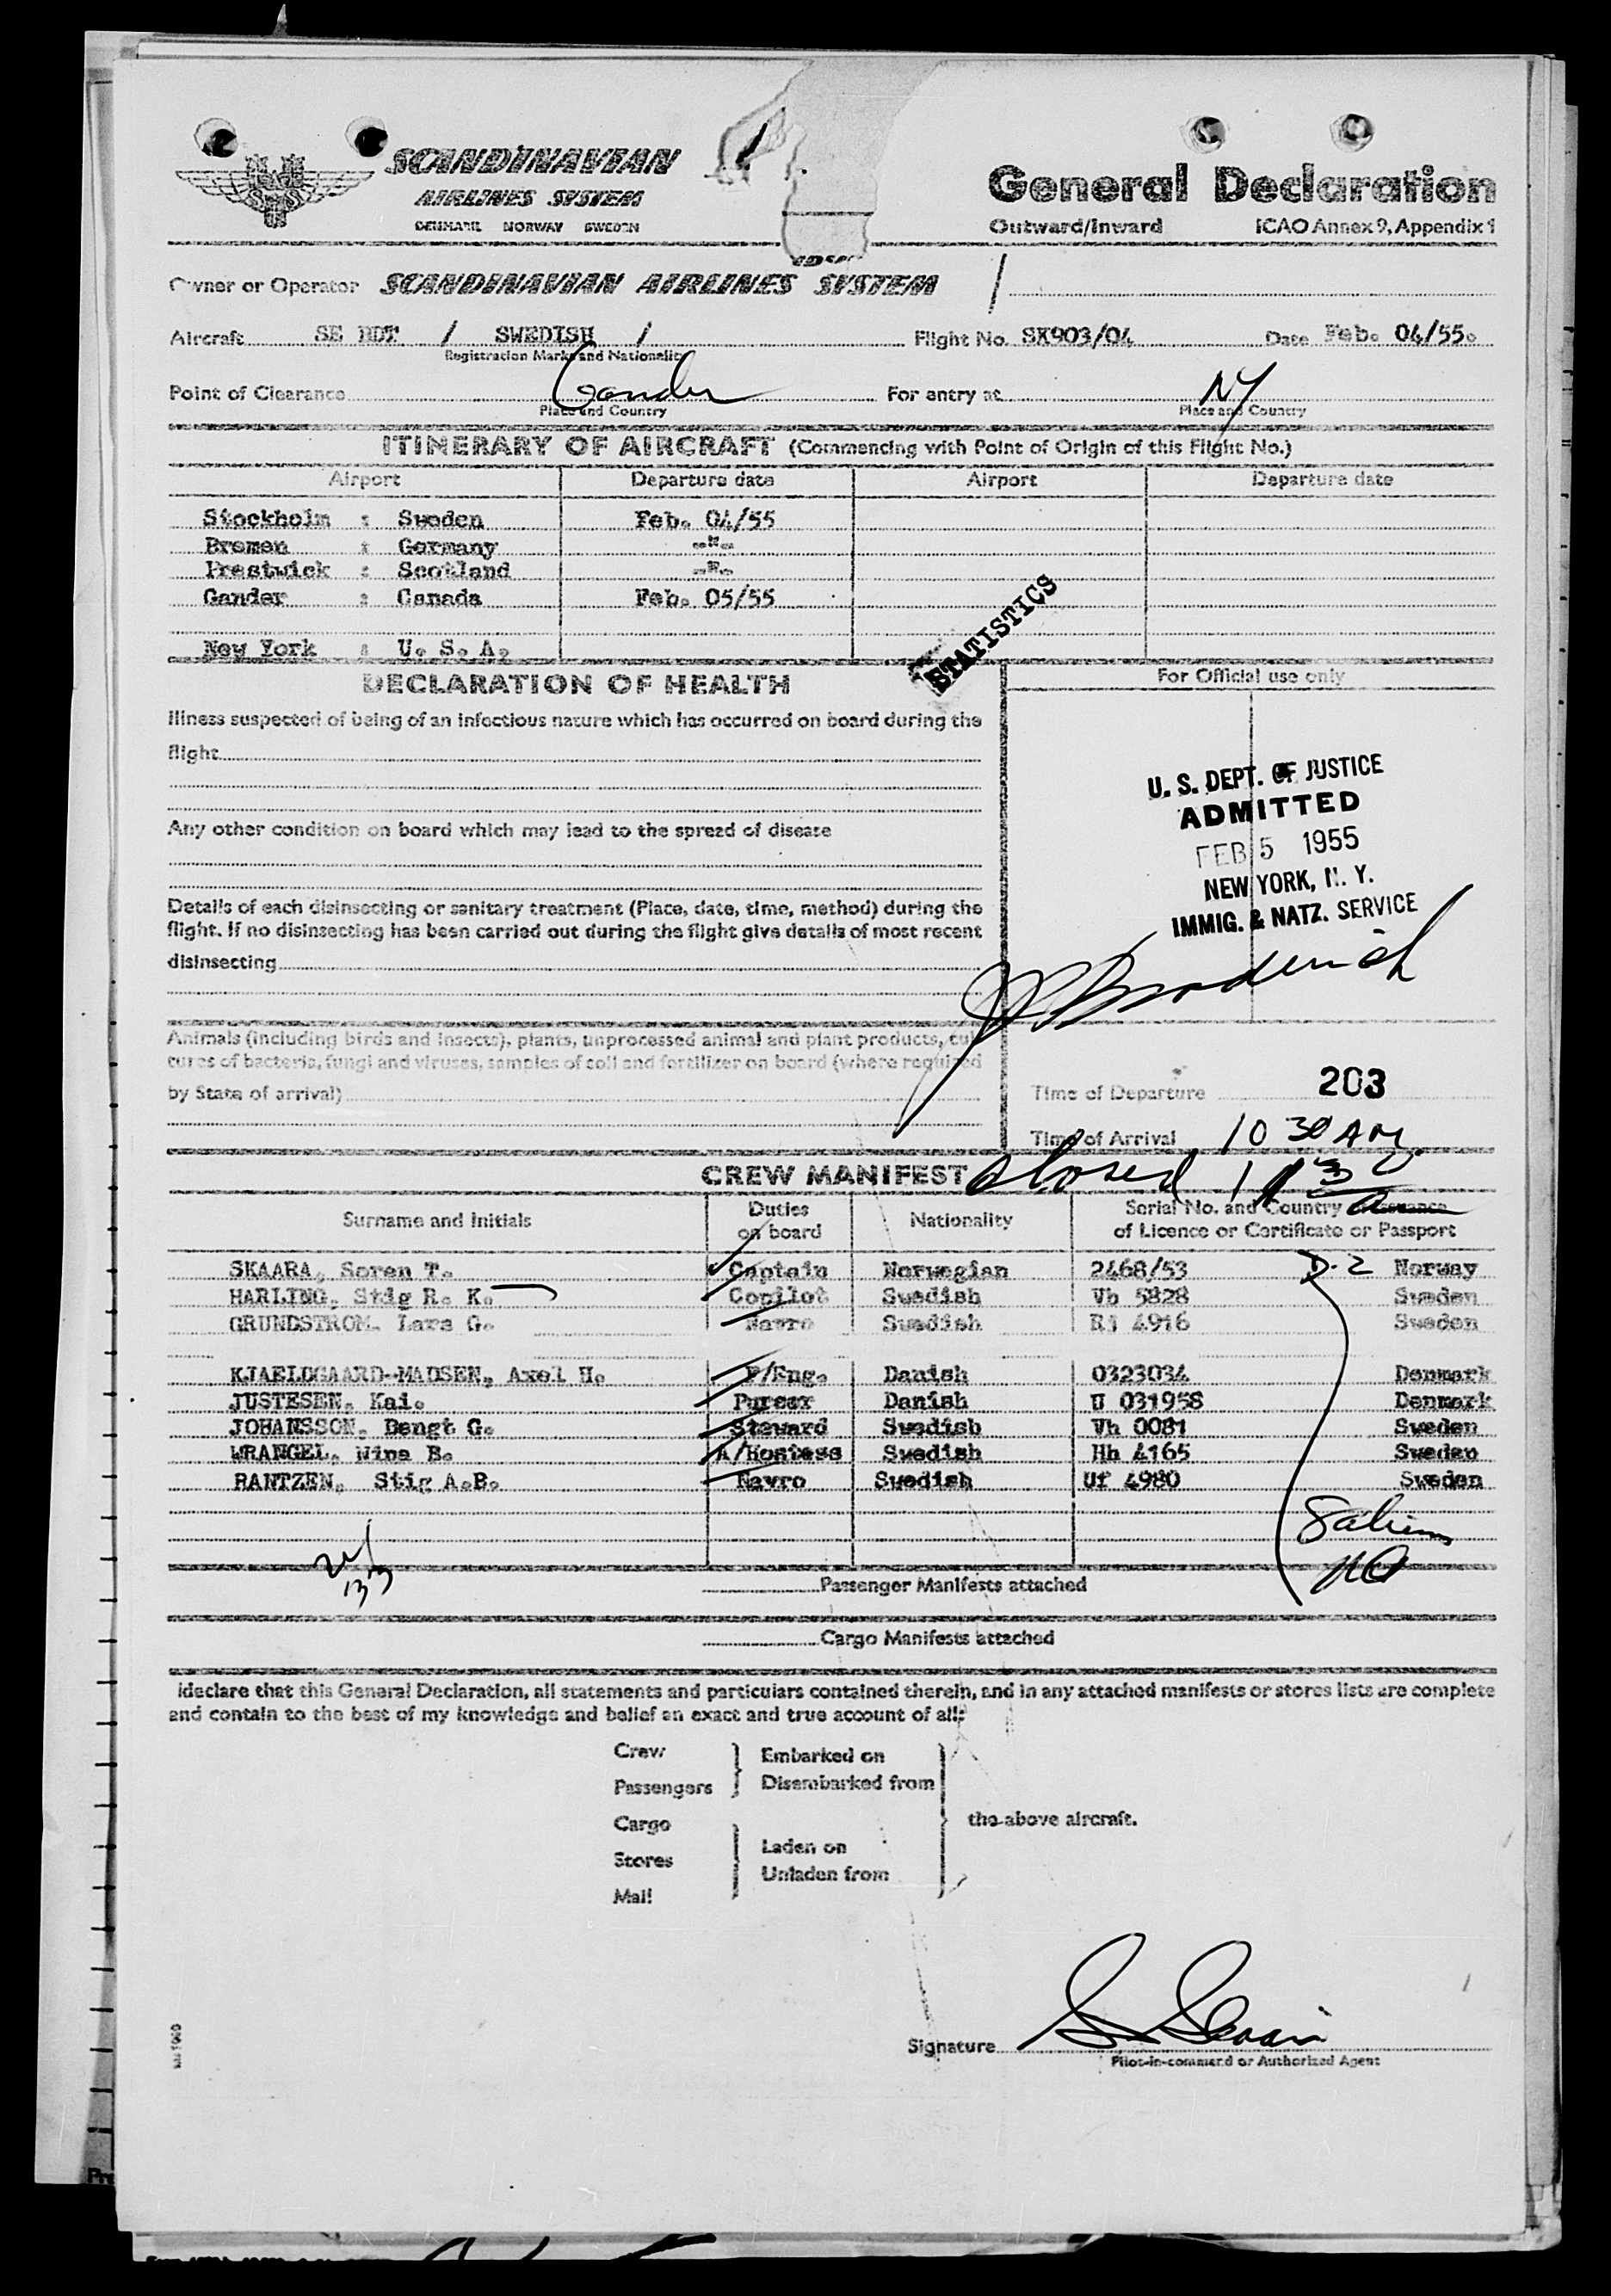 SCANDINAVIAN
AIRLINES SYSTEM
DENMARK NORWAY SWEDEN
SAS
General Declaration
Outward/Inward ICAO Annex 9, Appendix 1
Owner or Operator SCANDINAVIAN AIRLINES SYSTEM
Aircraft SE BDT / SWEDISH / Flight No. SK903/04 Date Feb. 04/55.
Registration Marks and Nationality
Point of Clearance Gander For entry at NY
Place and Country Place and Country
ITINERARY OF AIRCRAFT (Commencing with Point of Origin of this Flight No.)
Airport Departure date Airport Departure date
Stockholm : Sweden Feb. 04/55
Bremen : Germany -"-
Prestwick : Scotland -"-
Gander : Canada Feb. 05/55
New York : U. S. A.
STATISTICS
DECLARATION OF HEALTH
For Official use only
Illness suspected of being of an infectious nature which has occurred on board during the
flight
Any other condition on board which may lead to the spread of disease
Details of each disinsecting or sanitary treatment (Place, date, time, method) during the
flight. If no disinsecting has been carried out during the flight give details of most recent
disinsecting
U. S. DEPT. OF JUSTICE
ADMITTED
FEB 5 1955
NEW YORK, N. Y.
IMMIG. & NATZ. SERVICE
J Broderick
Animals (including birds and insects), plants, unprocessed animal and plant products, cul-
tures of bacteria, fungi and viruses, samples of soil and fertilizer on board (where required
by State of arrival)
Time of Departure 203
Time of Arrival 10 30 AM
CREW MANIFEST closed
Surname and Initials Duties on board Nationality Serial No. and Country of Issuance of Licence or Certificate or Passport
SKAARA, Soren T. Captain Norwegian 2468/53 D-2 Norway
HARLING, Stig R. K. Copilot Swedish Vb 5828 Sweden
GRUNDSTROM, Lars G. Navro Swedish Rj 4916 Sweden
KJAELDGAARD-MADSEN, Axel H. F/Eng. Danish 0323034 Denmark
JUSTESEN, Kai. Purser Danish U 031958 Denmark
JOHANSSON, Bengt G. Steward Swedish Vh 0081 Sweden
WRANGEL, Wina B. A/Hostess Swedish Hh 4165 Sweden
RANTZEN, Stig A.B. Navro Swedish Uf 4980 Sweden
Passenger Manifests attached
Cargo Manifests attached
I declare that this General Declaration, all statements and particulars contained therein, and in any attached manifests or stores lists are complete
and contain to the best of my knowledge and belief an exact and true account of all:
Crew
Passengers
Embarked on
Disembarked from
Cargo
Stores
Mail
Laden on
Unladen from
the above aircraft.
Signature
Pilot-in-command or Authorized Agent